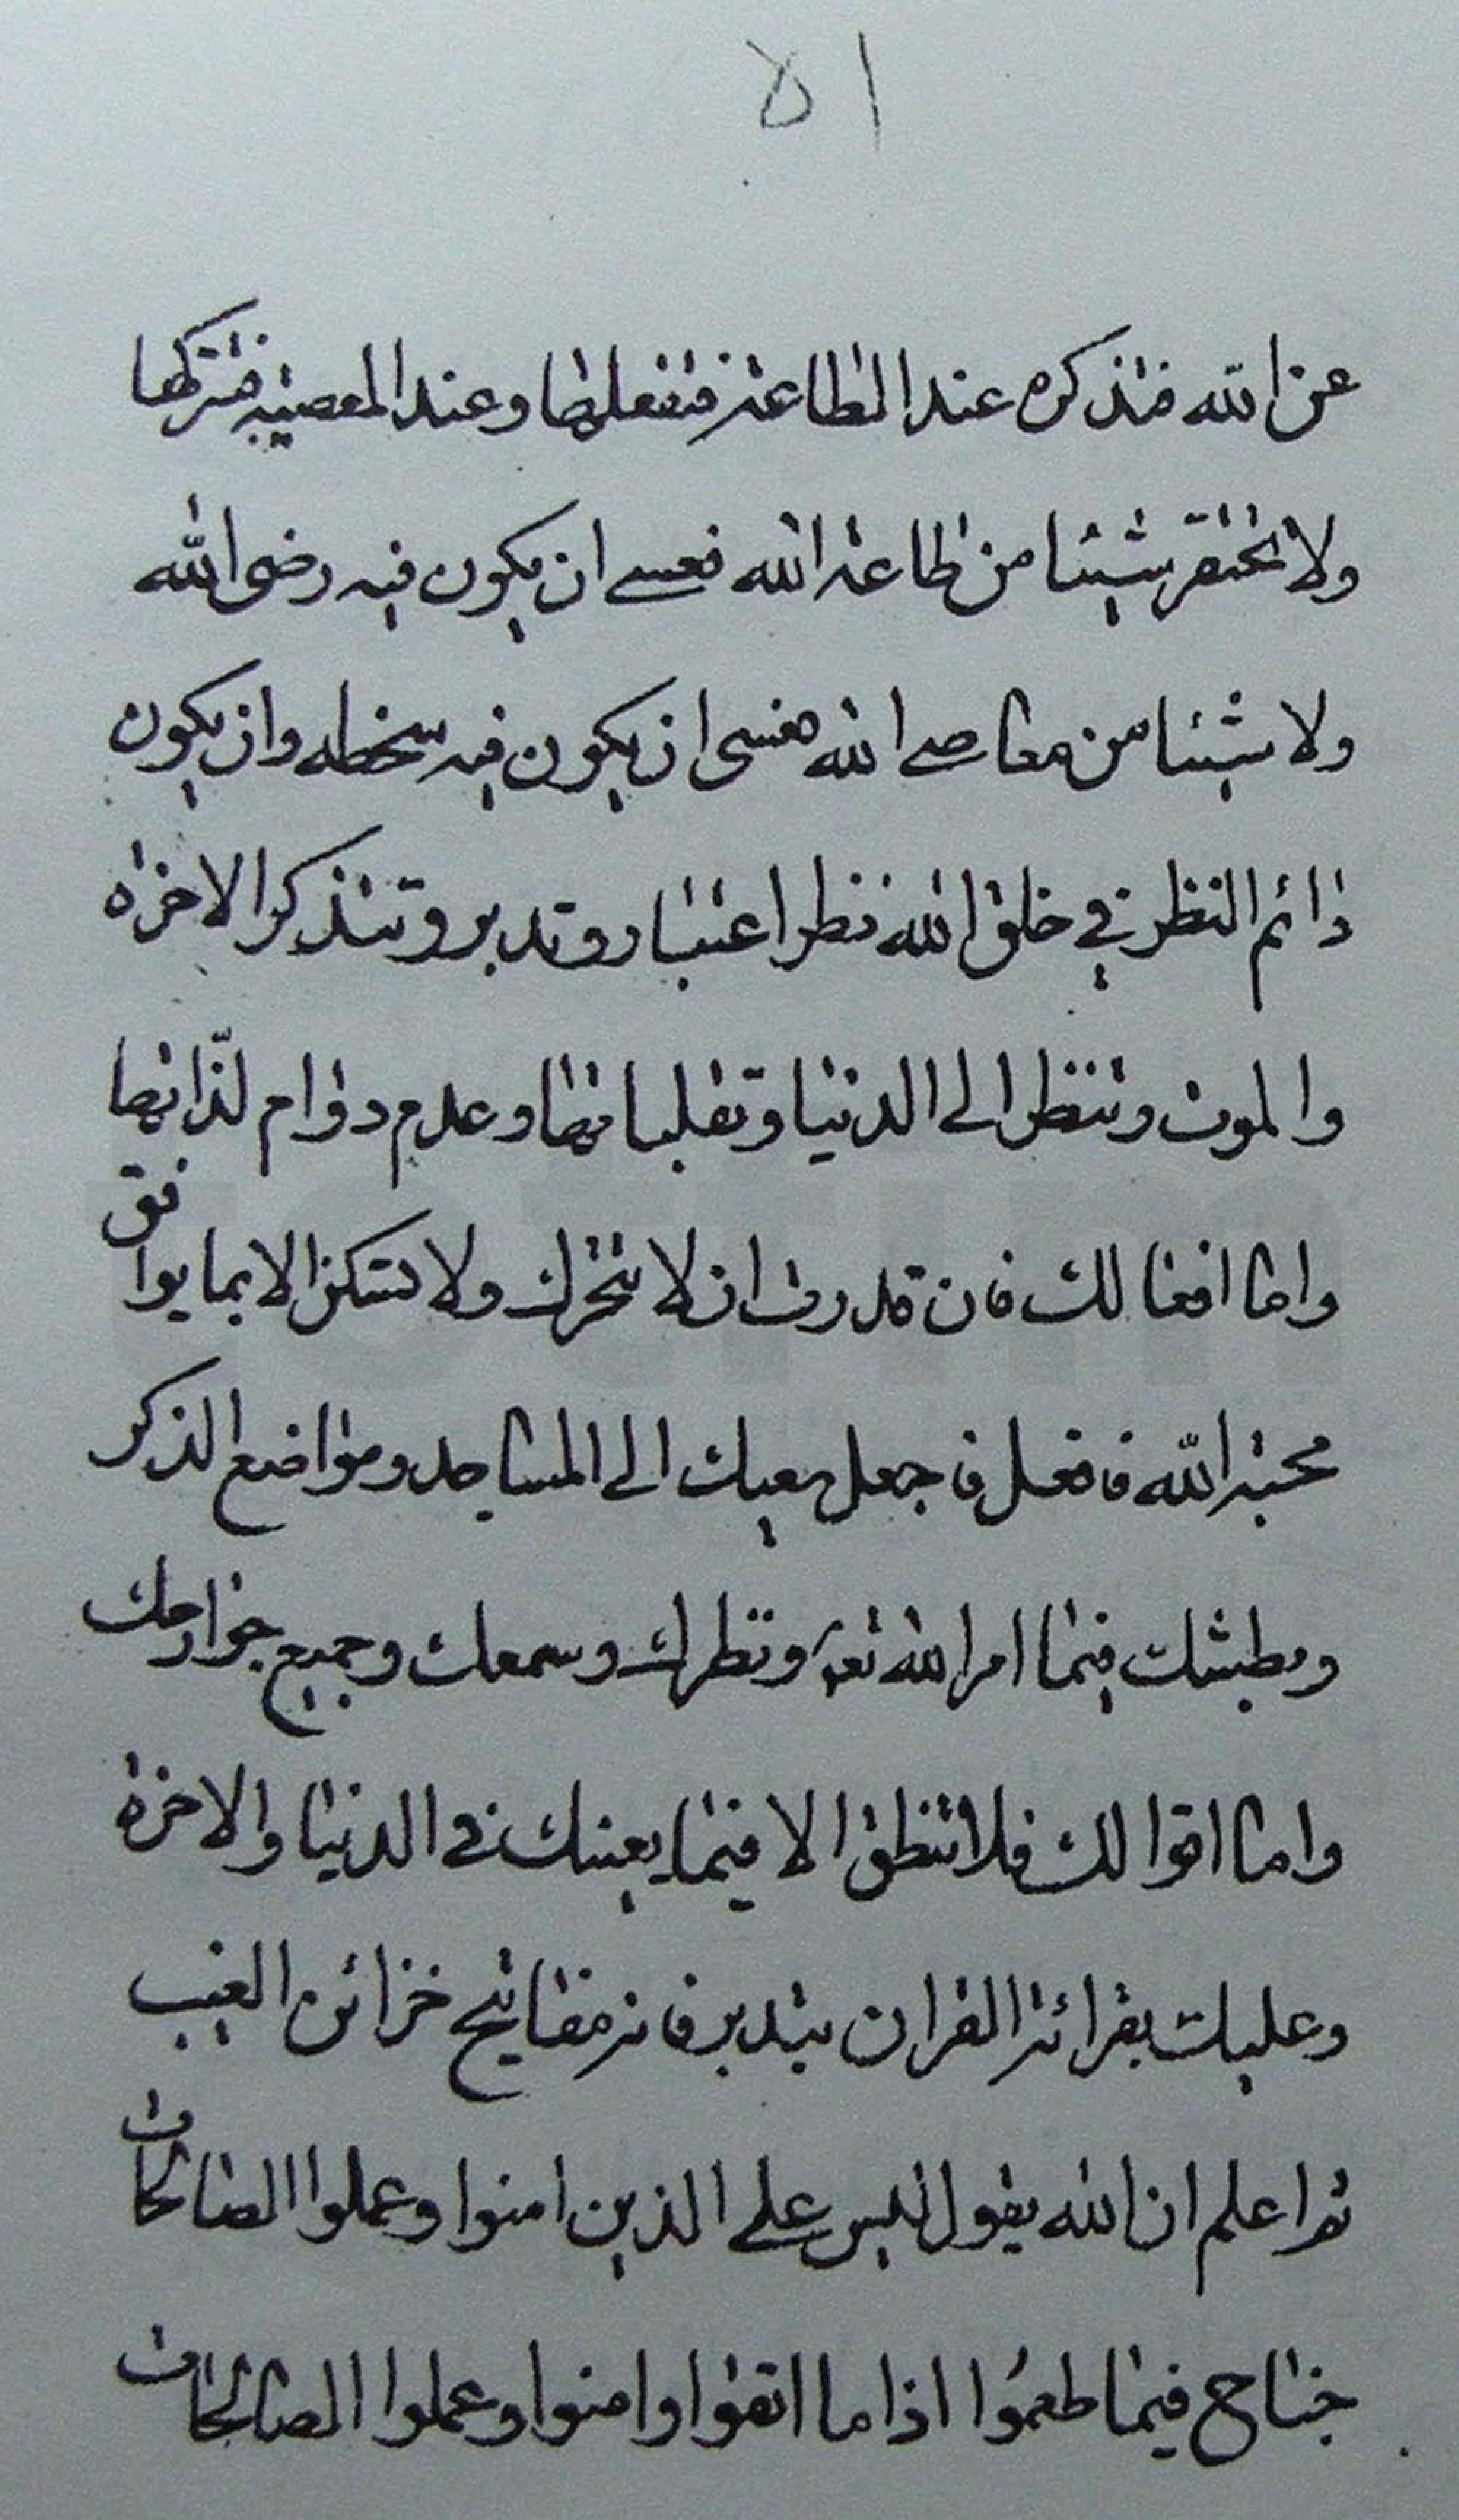 ١٥
عن الله فتذكره عند الطاعة فتفعلها وعند المعصية فتتركها
ولا تحتقر شيئا من طاعة الله فعسى ان يكون فيه رضى الله
ولا شيئا من معاصى الله فعسى ان يكون فيه سخطه وان يكون
دائم النظر فى خلق الله نظر اعتبار وتدبر وتتذكر الاخرة
والموت وتنظر الى الدنيا وتقلباتها وعدم دوام لذّاتها
واما افعالك فان قدرت ان لا تتحرك ولا تسكن الا بما يوافق
محبة الله فافعل فاجعل سعيك الى المساجد ومواضع الذكر
وبطشك فيما امر الله تعالى ونظرك وسمعك وجميع جوارحك
واما اقوالك فلا تنطق الا فيما يعنيك فى الدنيا والاخرة
وعليك بقرائة القران بتدبر فانه مفاتيح خزائن الغيب
ثم اعلم ان الله يقول ليس على الذين امنوا وعملوا الصالحات
جناح فيما طعمُوا اذا ما اتقوا وامنوا وعملوا الصالحات